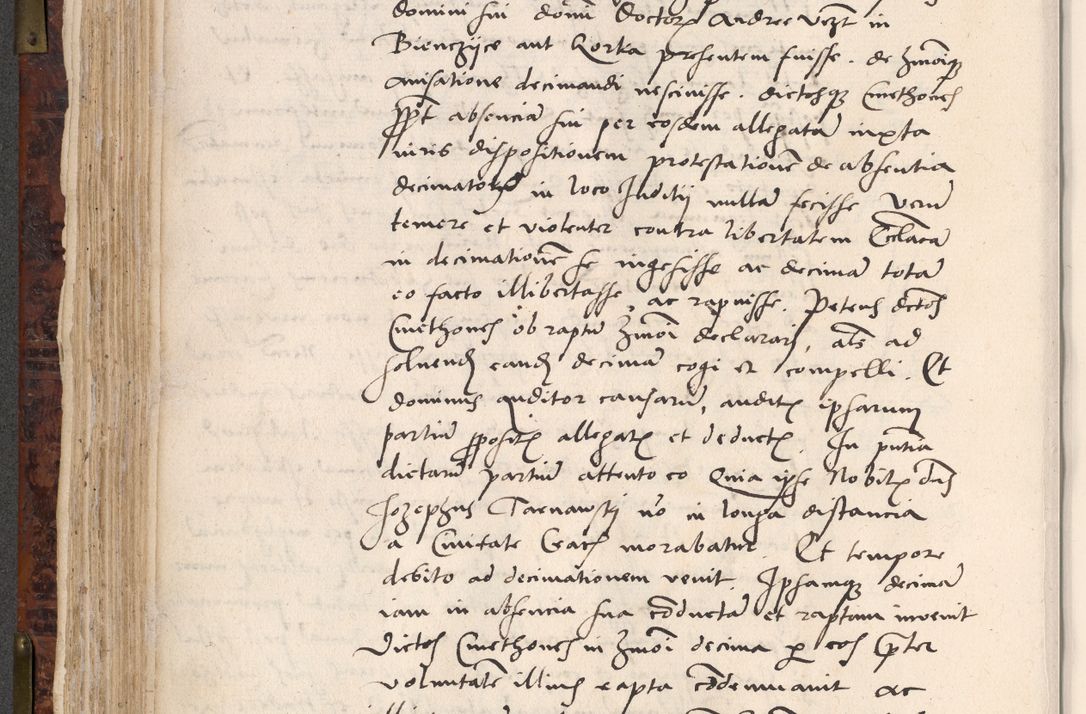 domini sui domini Doctoris Andree in
Bienczijce aut Gorka presentem fuisse. de
auisatione decimandi nesciuisse. dictosque Cmethones
ppt absenciã sui per eosdem allegatã iuxta
iuris dispositionem protestationẽ de absentia
decimatorũ in loco Juditij nullã fecisse Verũ
temere et violenter contra libertatem Ecclãcã
in decimationẽ se ingesisse ac decimã totã
eo facto illibertasse, ac rapuisse. Petens dctos
Cmethones ob raptũ declarari, als ad
soluend eand decimã cogi et compelli. Et
dominus auditor causarũ, auditis ipsarum
partiũ pposit allegat et deduct. In pñtia
dictarũ partiũ attento eo Quia ipse Nobilis dns
Jozephus Tarnawsky nõ in longa distancia
a Ciuitate Crac morabatur. Et tempore
debito ad decimationem venit. Ipsamque decimã
iam in absencia sua cõductã et raptam inuenit
Dictos Cmethones in decima p eos preter
voluntatẽ illius rapta cõdemnauit ac